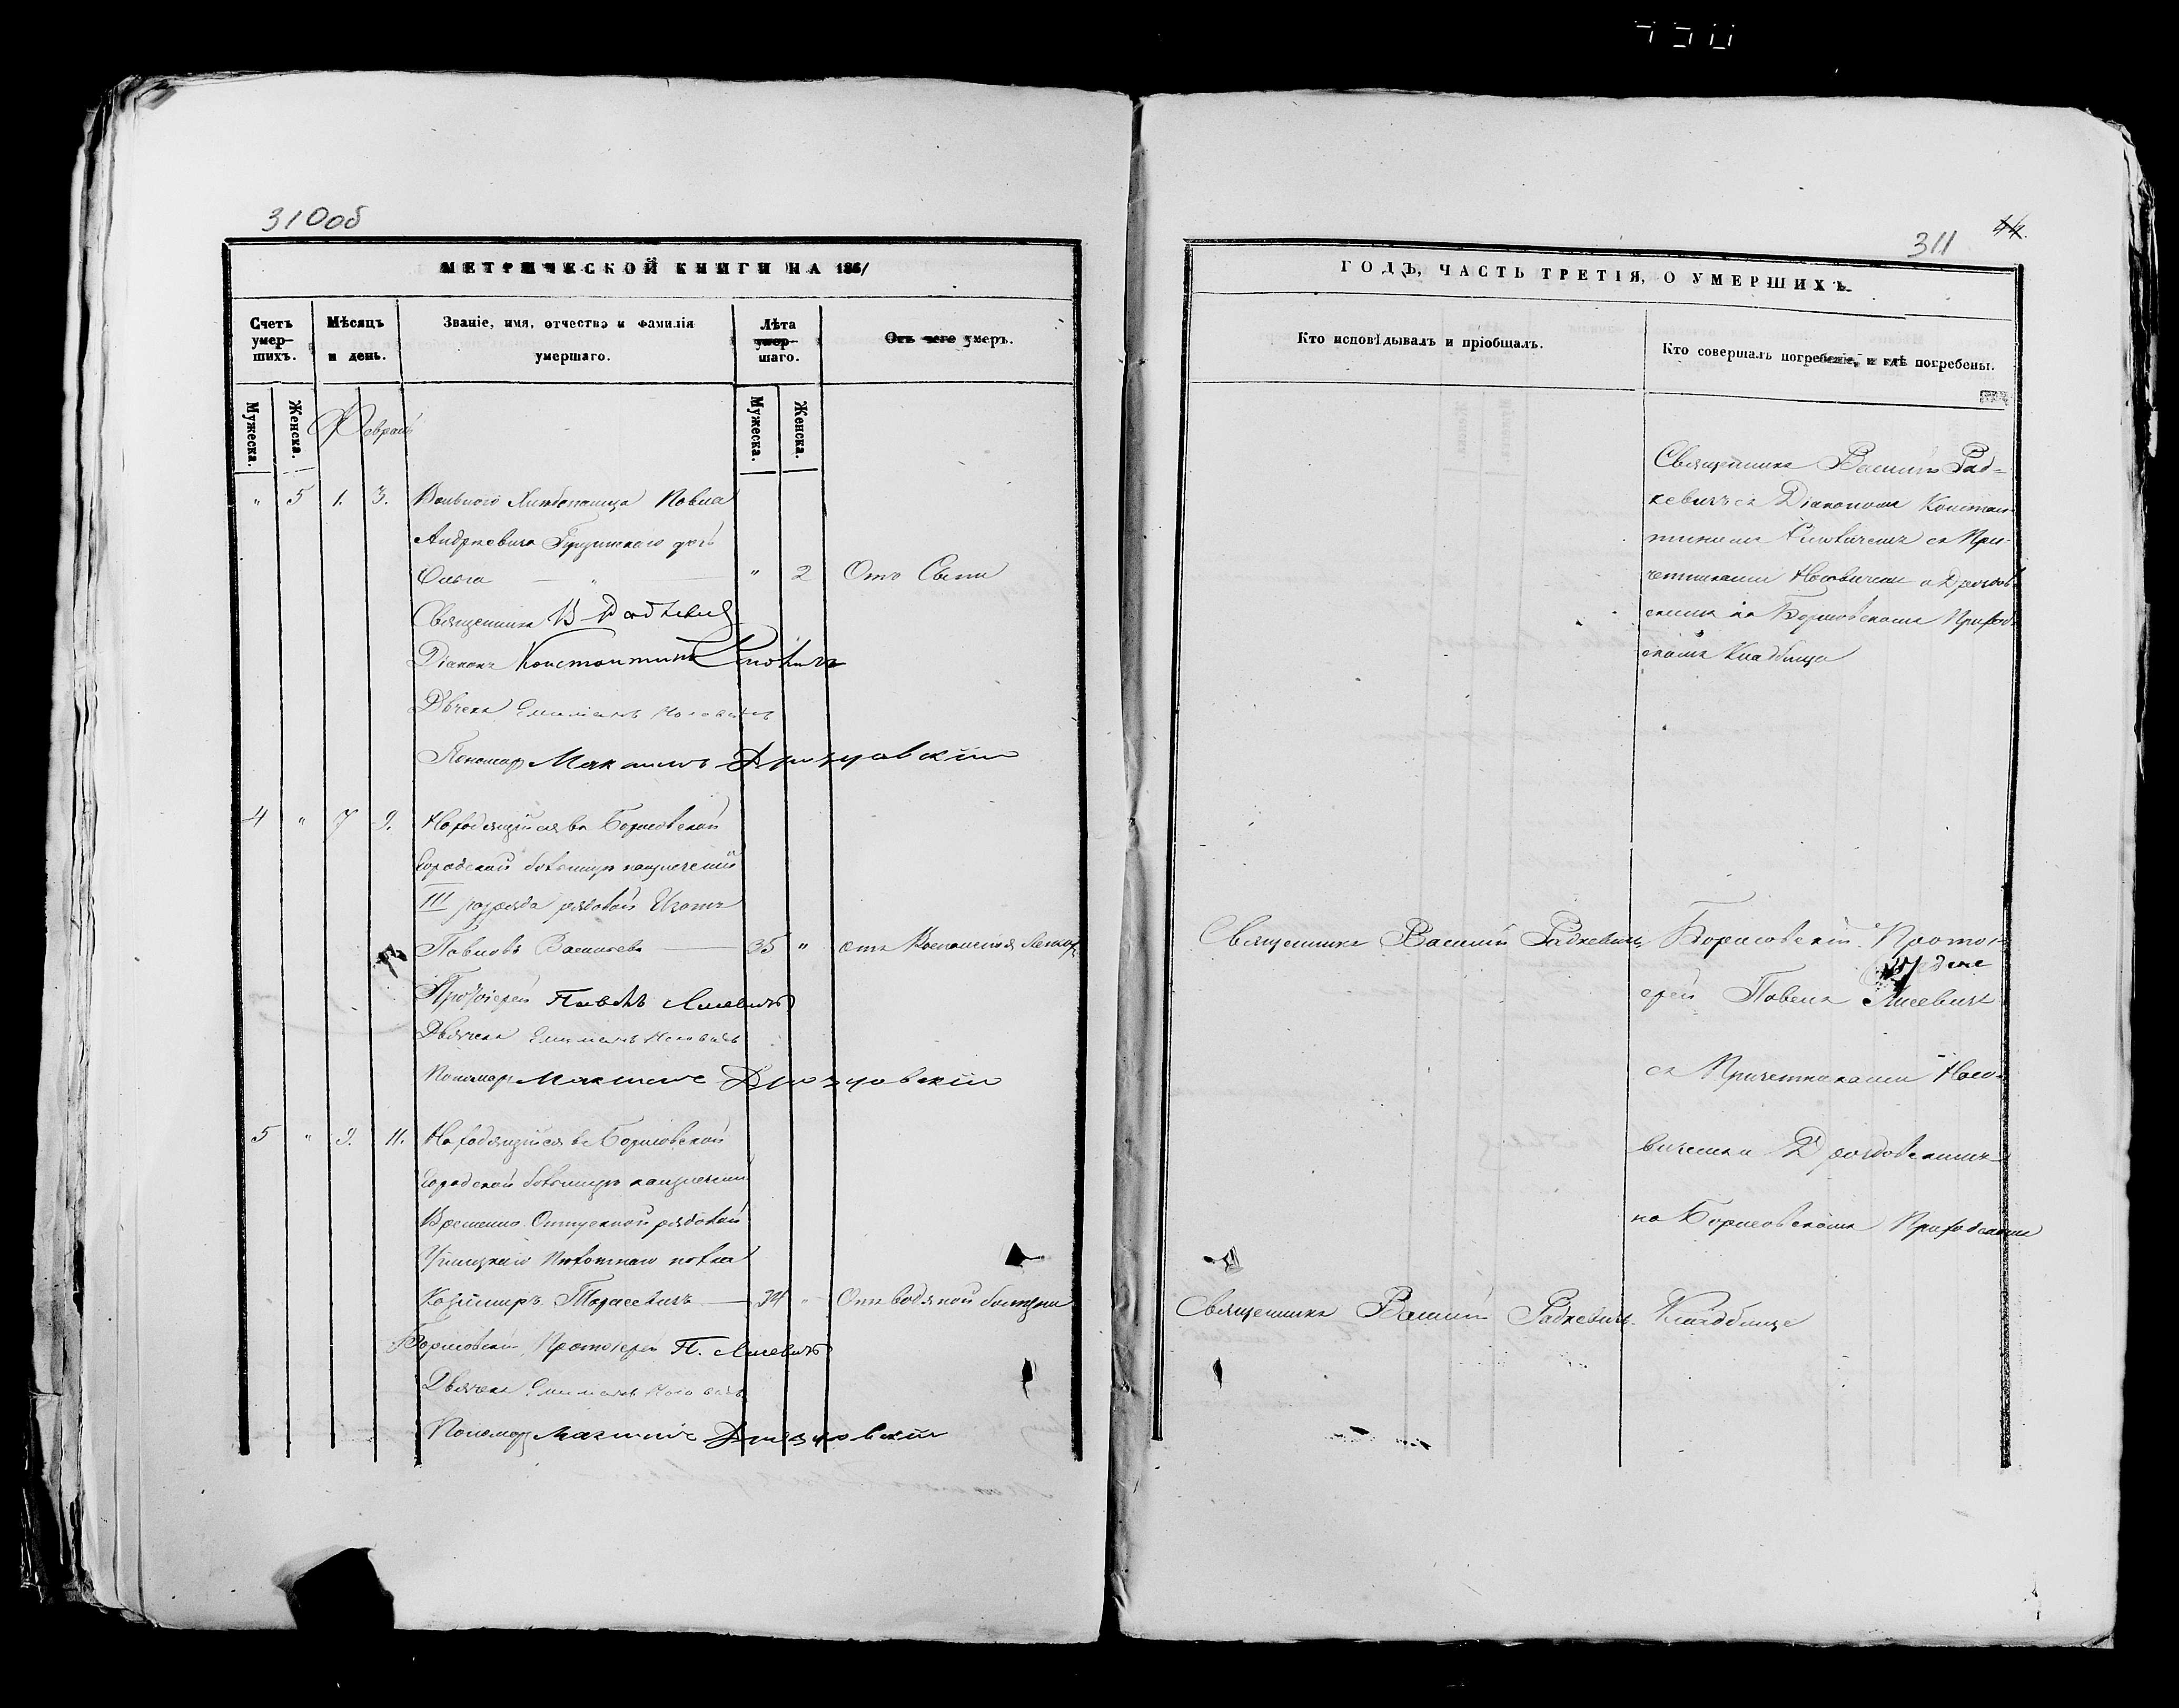 310об
МЕТРИЧЕСКОЙ КНИГИ НА 1861
Счетъ умер-шихъ.
Мѣсяцъ и день.
Званіе, имя, отчество и фамилія умершаго.
Лѣта умер-шаго.
Отъ чего умеръ.
Мужеска.
Женска.
Мужеска.
Женска.
Февраль
" 5 1. 3. Вольного Хлебопашца Павла
Андреевича дочь
Ольга — " — " 2 Отъ Сыпи
Священникъ В Радкевич
Діаконъ Константинъ
Дьячекъ Емиліанъ Носовичъ
Пономарь Максимъ Дроздовскій
4 " 7 9. Находящійся въ Борисовской
Городской больнице
III разряда рядовой
Павловъ Васильевъ — 35 " отъ Воспаленія
Протоіерей Павелъ Лисевичъ
Дьячекъ Емиліанъ Носовичъ
Пономарь Максимъ Дроздовскій
5 " 9. 11. Находящійся въ Борисовской
Городской больнице
Временно Отпускной рядовой
Углицкаго Пехотнаго полка
Казимиръ Тарасевичъ — 34 " Отъ водяной болезни
Борисовскій Протоіерей П. Лисевичъ
Дьячекъ Емиліанъ Носовичъ
Пономарь Максимъ Дроздовскій
44.
311
ГОДЪ, ЧАСТЬ ТРЕТІЯ, О УМЕРШИХЪ.
Кто исповѣдывалъ и пріобщалъ.
Кто совершалъ погребеніе, и гдѣ погребены.
Священникъ Василій Рад-
кевичъ съ Діакономъ Констан
тиномъ съ При-
четниками Носовичемъ и Дроздов
скимъ на Борисовскомъ Приход
скомъ Кладбище
Священникъ Василій Радкевичъ Борисовскій Протоі-
ерей Павелъ Лисевичъ
съ Причетниками Носо-
вичемъ и Дроздовскимъ
на Борисовскомъ Приходскомъ
Священникъ Василій Радкевичъ Кладбище